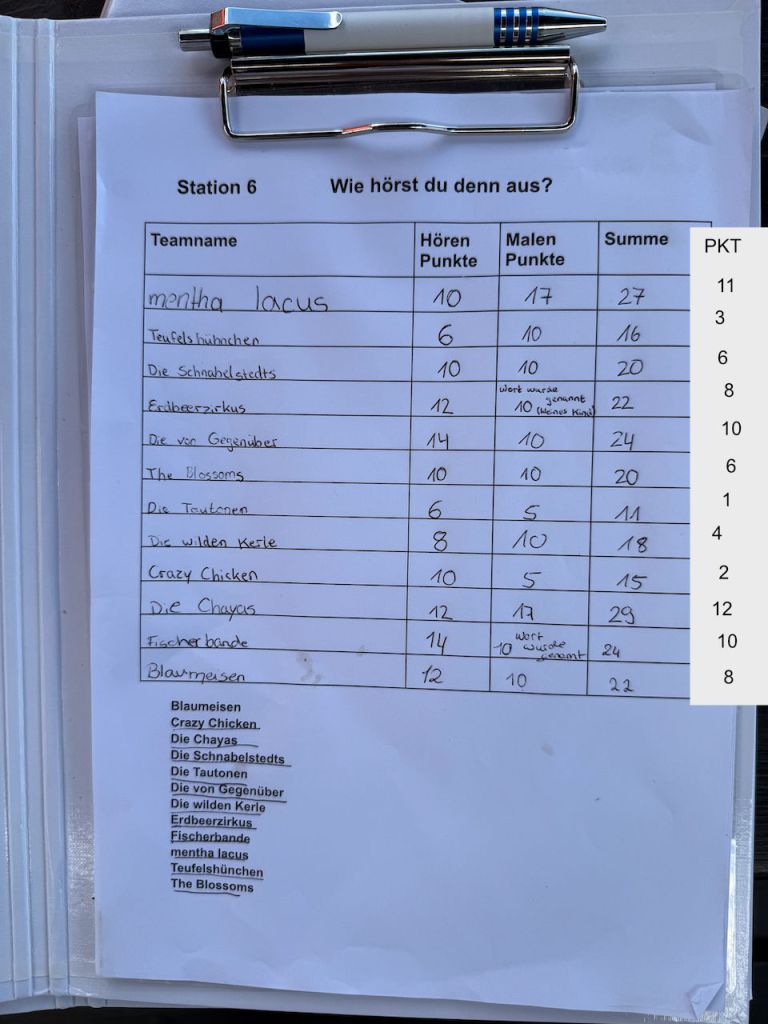 Station 6 Wie hörst du denn aus?
Teamname Hören Punkte Malen Punkte Summe PKT
mentha lacus 10 17 27 11
Teufelshühnchen 6 10 16 3
Die Schnabelstedts 10 10 20 6
Erdbeerzirkus 12 10 Wort wurde genannt (kleines Kind) 22 8
Die von Gegenüber 14 10 24 10
The Blossoms 10 10 20 6
Die Tautonen 6 5 11 1
Die wilden Kerle 8 10 18 4
Crazy Chicken 10 5 15 2
Die Chayas 12 17 29 12
Fischerbande 14 10 Wort wurde genannt 24 10
Blaumeisen 12 10 22 8
Blaumeisen
Crazy Chicken
Die Chayas
Die Schnabelstedts
Die Tautonen
Die von Gegenüber
Die wilden Kerle
Erdbeerzirkus
Fischerbande
mentha lacus
Teufelshünchen
The Blossoms